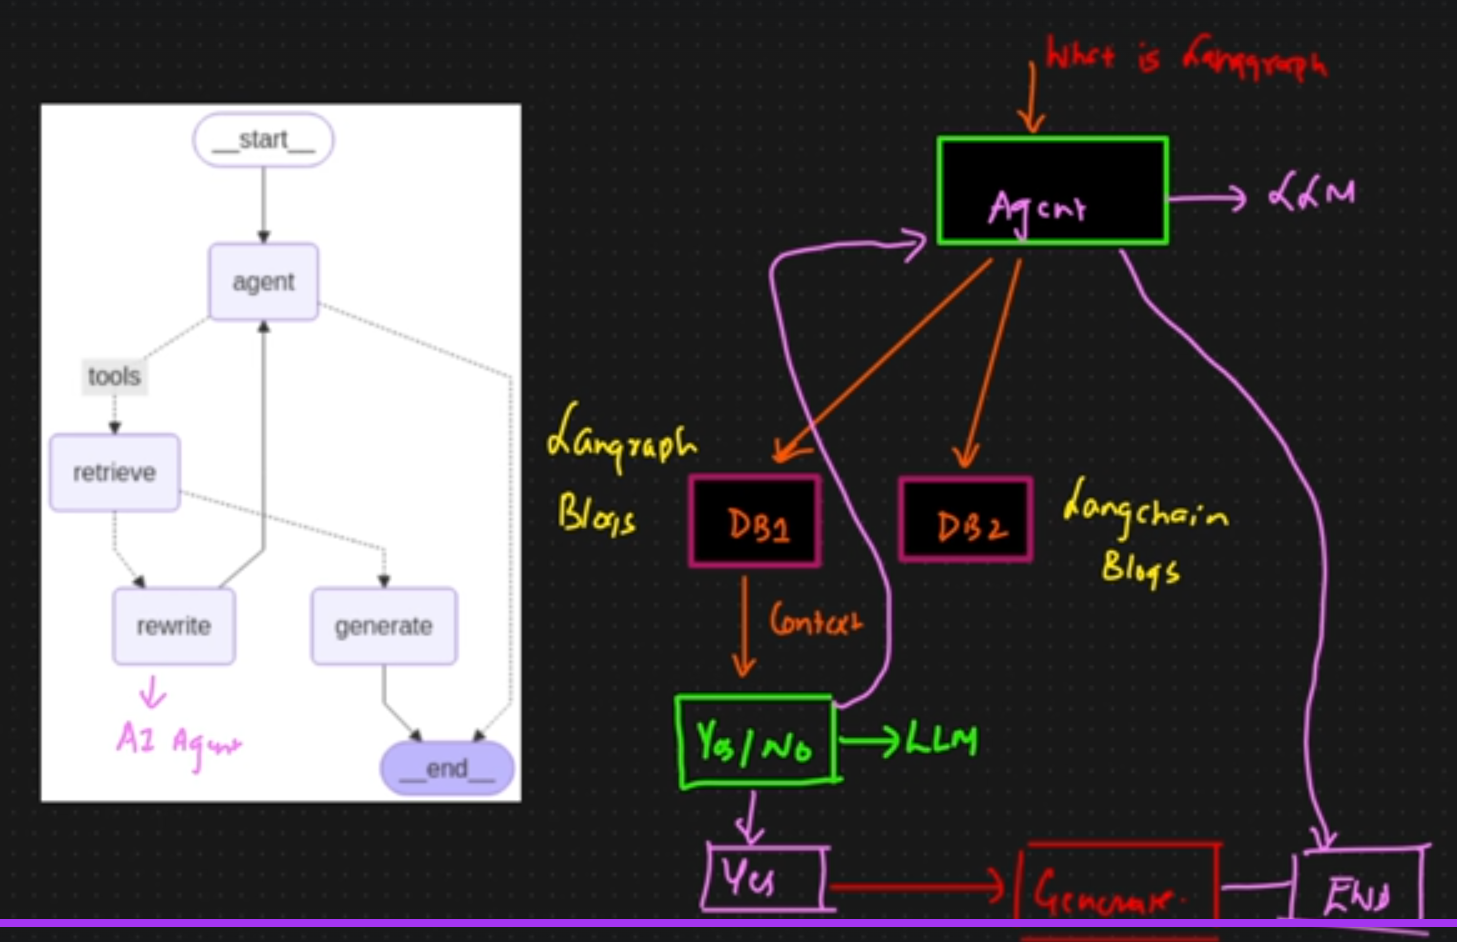 __start__
agent
tools
retrieve
rewrite
generate
__end__
AI Agent
What is Langgraph
Agent
LLM
Langraph
Blogs
DB1
DB2
Langchain
Blogs
Context
Yes/No
LLM
Yes
Generate.
END